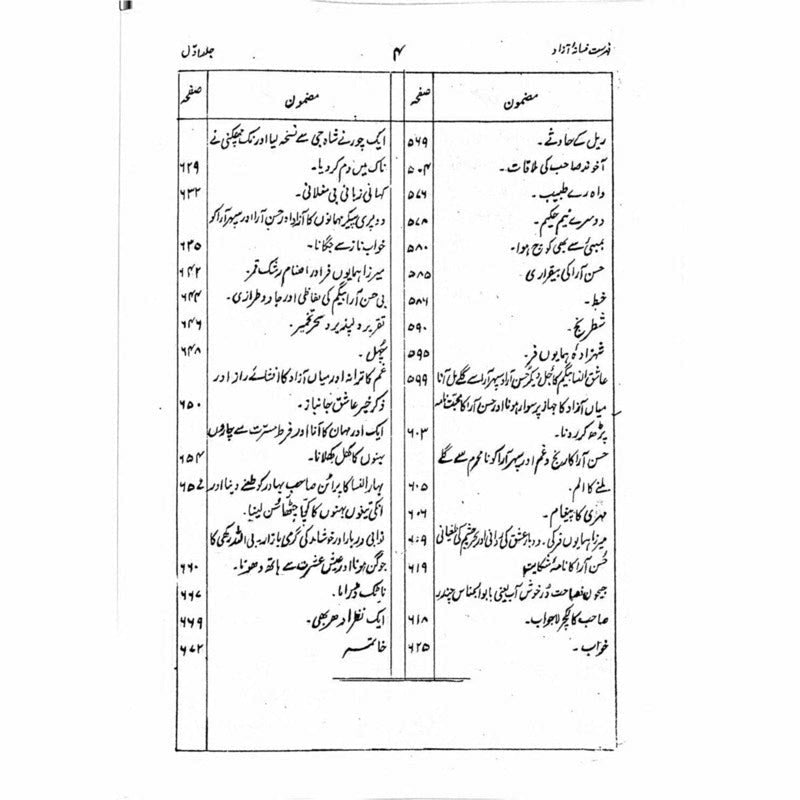 فہرست فسانۂ آزاد
۴
جلد اوّل
مضمون
صفحہ
ریل کے حادثے۔ ۵۶۹
آخوند صاحب کی ملاقات۔ ۵۰۴
واہ رے طبیب۔ ۵۷۶
دوسرے نیم حکیم۔ ۵۷۸
بمبئی سے بھی کوچ ہوا۔ ۵۸۰
حسن آرا کی بیقراری ۵۸۵
خط۔ ۵۸۶
شطرنج۔ ۵۹۰
شہزادہ ہمایوں فر۔ ۵۹۵
عاشق النسا بیگم کا جُل دیکر حُسن آرا و سپہر آرا سے گلے مل آنا ۵۹۹
میاں آزاد کا جہاز پر سوار ہونا اور حسن آرا کا محبت نامہ
پڑھ کر رونا۔ ۶۰۳
حسن آرا کا رنج و غم اور سپہر آرا کو نا محرم سے گلے
ملنے کا الم۔ ۶۰۵
مہری کا پیغام۔ ۶۰۶
میرزا ہمایوں فر کی دربار عشق کی اور چشم کی طغیانی ۶۰۹
حُسن آرا کا نامۂ شکایت ۶۱۹
جیحون فصاحت دُرِ خوش آب یعنی بابو چندر
صاحب کا لکچر لاجواب۔ ۶۱۸
خواب۔ ۶۲۵
مضمون
صفحہ
ایک چور نے شاہ جی سے نسخہ لیا اور نک چھکنی نے
ناک میں دم کر دیا۔ ۶۲۹
کہانی زبانی بی مغلانی۔ ۶۳۲
دو پری پیکر مہمانوں کا آزاد اور حسن آرا اور سپہر آرا کو
خواب ناز سے جگانا۔ ۶۳۵
میرزا ہمایوں فر اور اصنام رشک قمر۔ ۶۴۲
بی حسن آرا بیگم کی لفاظی اور جادو طرازی۔ ۶۴۴
تقریر دلپذیر و سحر تخمیر۔ ۶۴۶
چُہل۔ ۶۴۸
غم کا ترانہ اور میاں آزاد کا افشائے راز اور
ذکر خیر عاشق جانباز۔ ۶۵۰
ایک اور مہمان کا آنا اور فرط مسرت سے چاروں
بہنوں کا گھل کھلانا۔ ۶۵۴
بہار النسا کا پرائن صاحب بہادر کو طعنے دینا اور ۶۵۷
انکی تینوں بہنوں کا کچا چٹھا سُن لینا۔
نوابی دربار اور خوشامد کی گرمی بازار۔ بی اللہ رکھی کا
جوگن ہونا اور عیش عشرت سے ہاتھ دھونا۔ ۶۶۰
ناٹک ڈراما۔ ۶۶۷
ایک نظر ادھر بھی۔ ۶۶۹
خاتمہ ۶۷۲